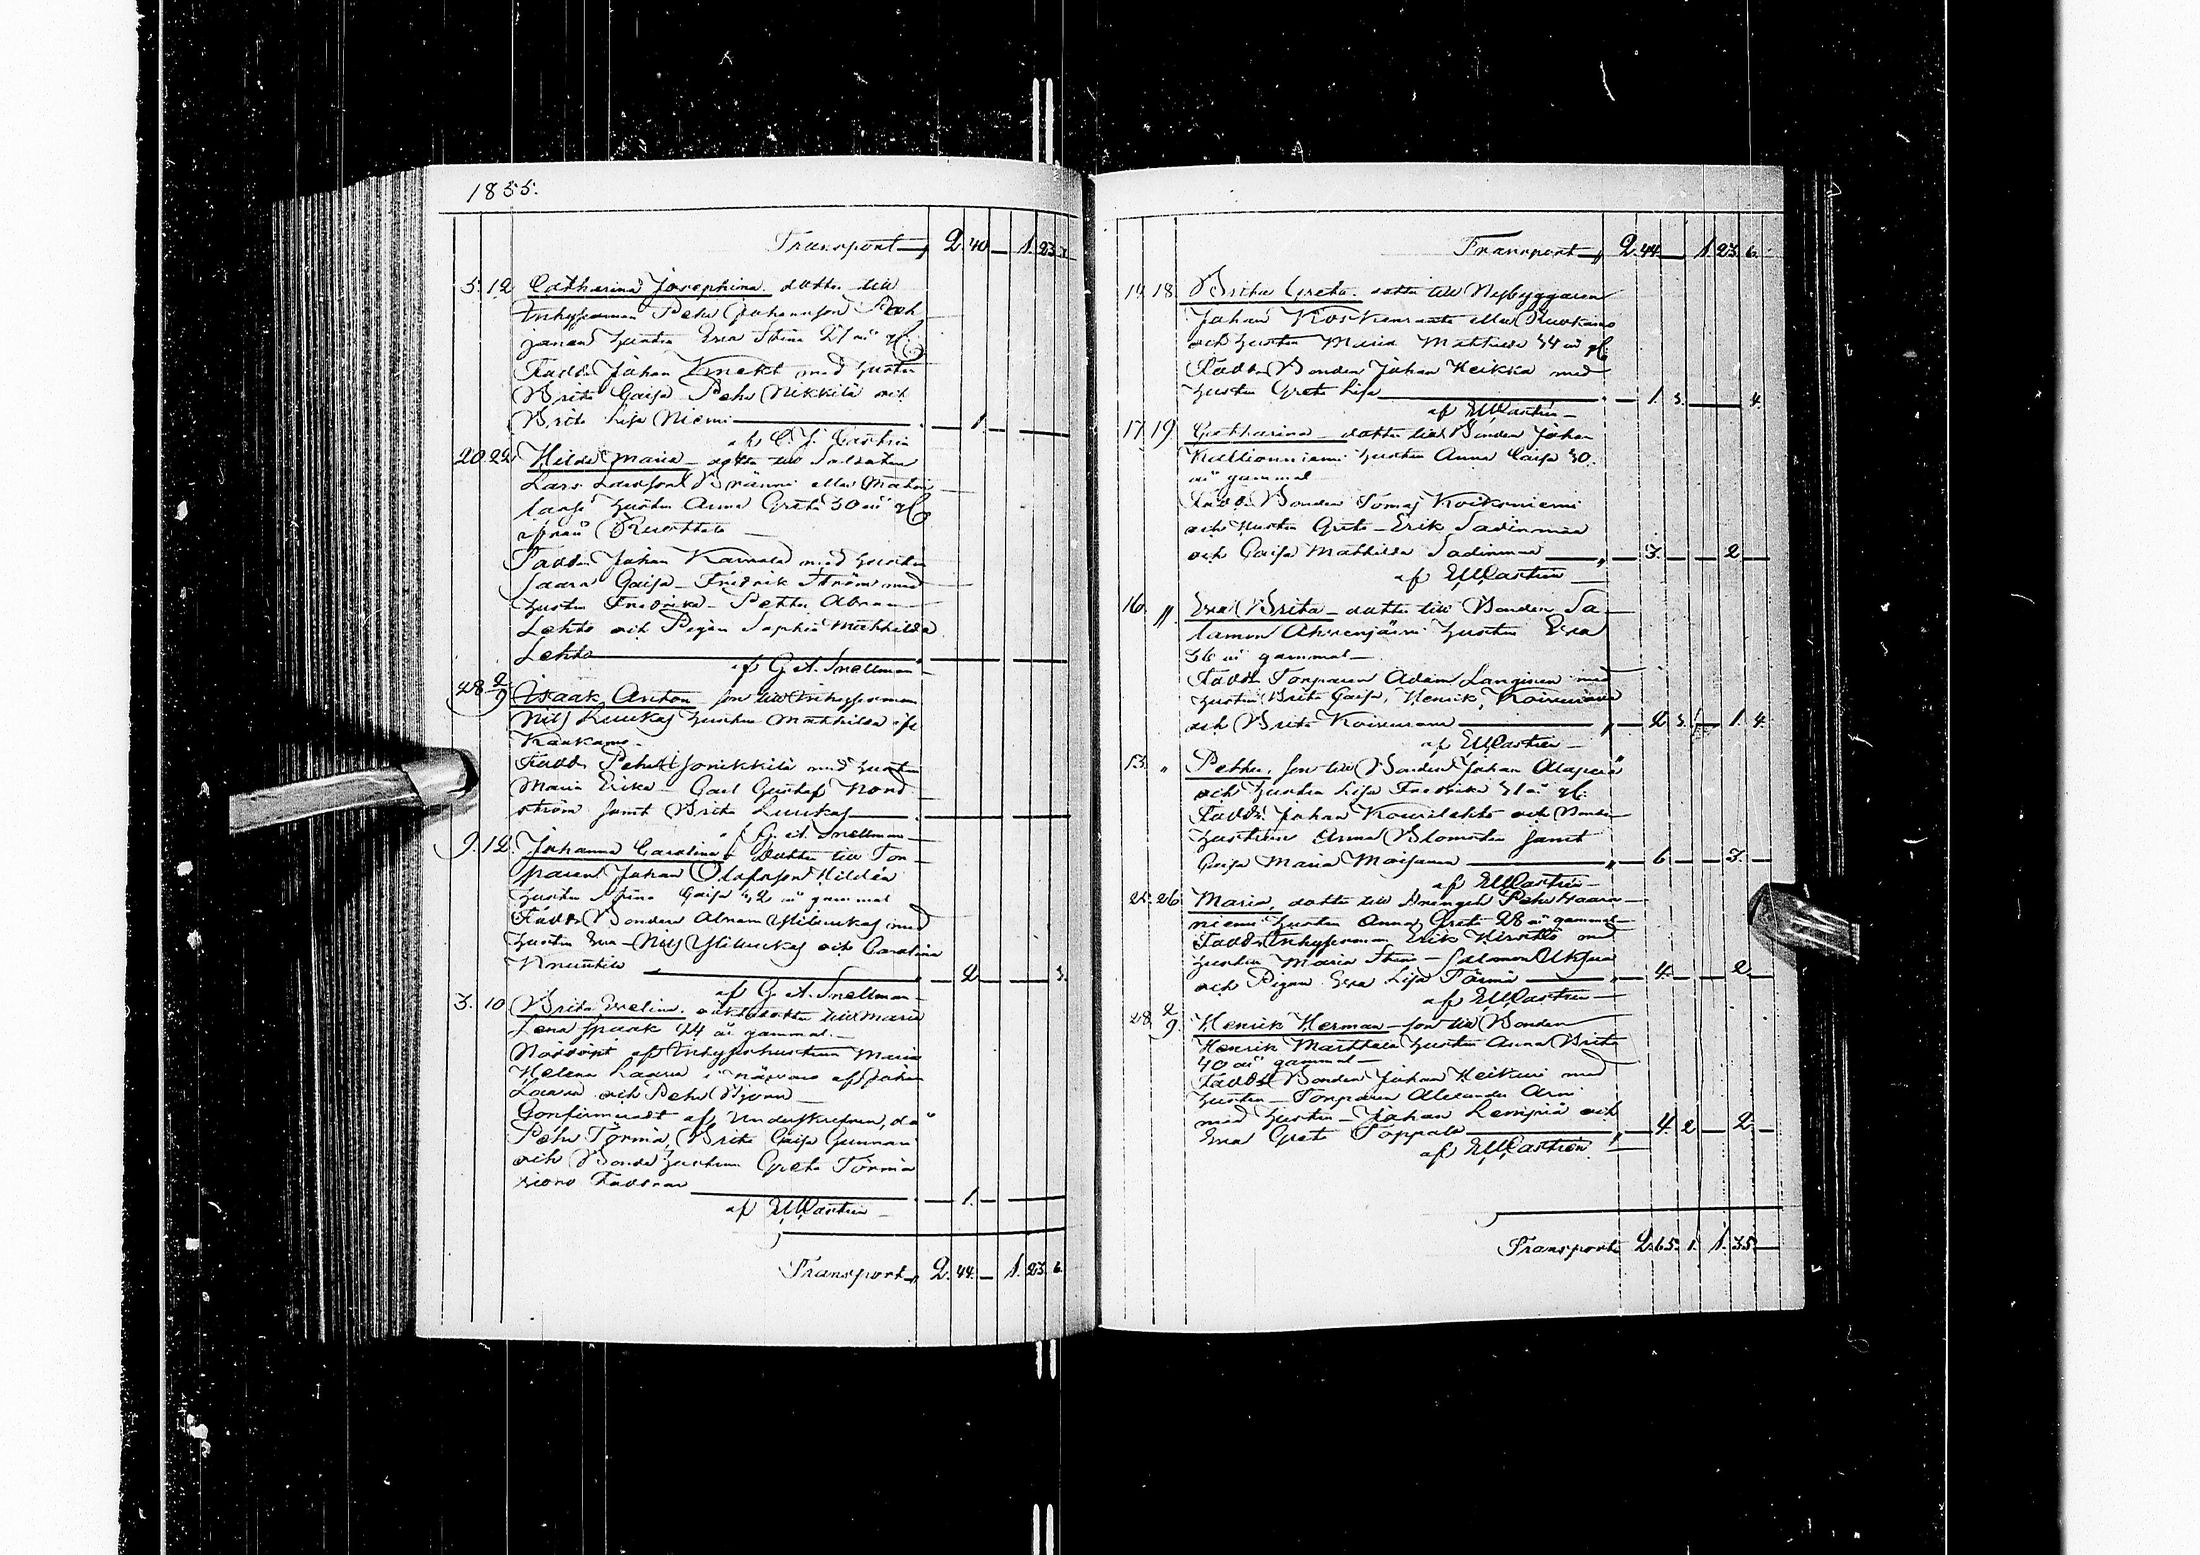 1855.
Transport 2. 40 — 1. 23
5. 12 Catharina Josephina. dotter till
Inhyseman Pehr Johansson
hustru Eva Stina 27 år gl.
Fadd. Johan Knekt med hustru
Brita Caisa Pehr Nikkilä och
Brita Lisa Niemi — 1. —
af C. J. Castrén
20. 22 Hilda Maria — dotter till Soldaten
Lars Larsson eller
hustru Anna Greta 30 år gl.
ifrån
Fadd. Johan med hustru
Saara Caisa — Fredrik Ström med
hustru Fredrika — Petter Abram
Lehto och Pigan Sophia Mathilda
Lehto
af G. A. Snellman
28 2/9 Isaak Anton son till Inhyseman
Nils Luukas hustru Mathilda
Kaakamo.
Fadd. Pehr Jonikkilä med hustru
Maria Erika — Carl Gustaf Nord
ström samt Brita Luukas
af G. A. Snellman
9. 12. Johanna Carolina — Dotter till Tor
paren Johan Olofsson Hildén
hustru Stina Caisa 42 år gammal
Fadd. Bonden Abram Yliluukas med
hustru Eva — Nils Yliluukas och Carolina
Knuutila — 2 — 3.
af G. A. Snellman
3. 10 Brita Evelina. dotter till Maria
Lena Spaak 24 år gammal.
Nöddöpt af Inhyseshustrun Maria
Helena Laaru i närvaro af Johan
Laaru och Pehr
Confirmeradt af Undertecknad, då
Pehr Törmä, Brita Caisa Gunnari
och Bonde hustrun Greta Törmä
voro Faddrar — 1. —
af EMCastrén
Transport 2. 44. — 1. 23. 6.
Transport 2. 44. — 1 23 6.
14. 18. Brita Greta. dotter till Nybyggaren
Johan Koskenranta eller Ruokamo
och hustru Maria Mathilda 34 år gl.
Fadd. Bonden Johan Heikka med
hustru Greta Lisa — 1. 3. — 4.
af EMCastrén
17. 19. Catharina — dotter till Bonden Johan
Kallioniemi hustru Anna Caisa 30.
år gammal
Fadd. Bonden Tomas Koikoniemi
och hustru Greta — Erik Sadinmaa
och Caisa Mathilda Sadinmaa — 3. — 2 —
af EMCastrén
16. " Eva Brita — dotter till Bonden Sa
lamon Ahvenjärvi hustru Eva
36 år gammal —
Fadd. Torparen Adam Länginen med
hustru Brita Caisa, Henrik Koivuranta
och Brita Koivuranta — 2 3. — 1. 4.
af EMCastrén
13. " Petter, son till Bonden Johan Alaperä
och hustru Lisa Fredrika 31 år gl.
Fadd. Johan Kouvalehto och Bonde
hustrun Anna Blomster samt
Caisa Maria Moisanen — 6 — 3. —
af EMCastrén
25. 26 Maria, dotter till Drengen Pehr Haara
niemi hustru Anna Greta 28 år gammal
Fadd. Inhyseman Erik med
hustru Maria Stina — Salomon
och Pigan Eva Lisa Törmä — 4. — 2 —
af EMCastrén
28 2/9. Henrik Herman — son till Bonden
Henrik Marttala hustru Anna Brita
40 år gammal —
Fadd. Bonden Johan Heikuri med
hustru — Torparen Alexander Arvi
med hustru — Johan Lempiä och
Eva Greta Toppala — 4. 2 — 2. —
af EMCastrén
Transport 2. 65. 1. 1. 35. —